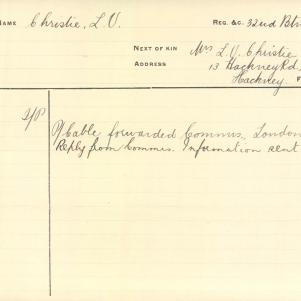 NAME Christie, L. V. REG. &C. 32nd Btn
NEXT OF KIN Mrs L. V. Christie
ADDRESS 13 Hackney Rd.,
Hackney. F
Cable forwarded Commis. London
Reply from Commis. Information sent